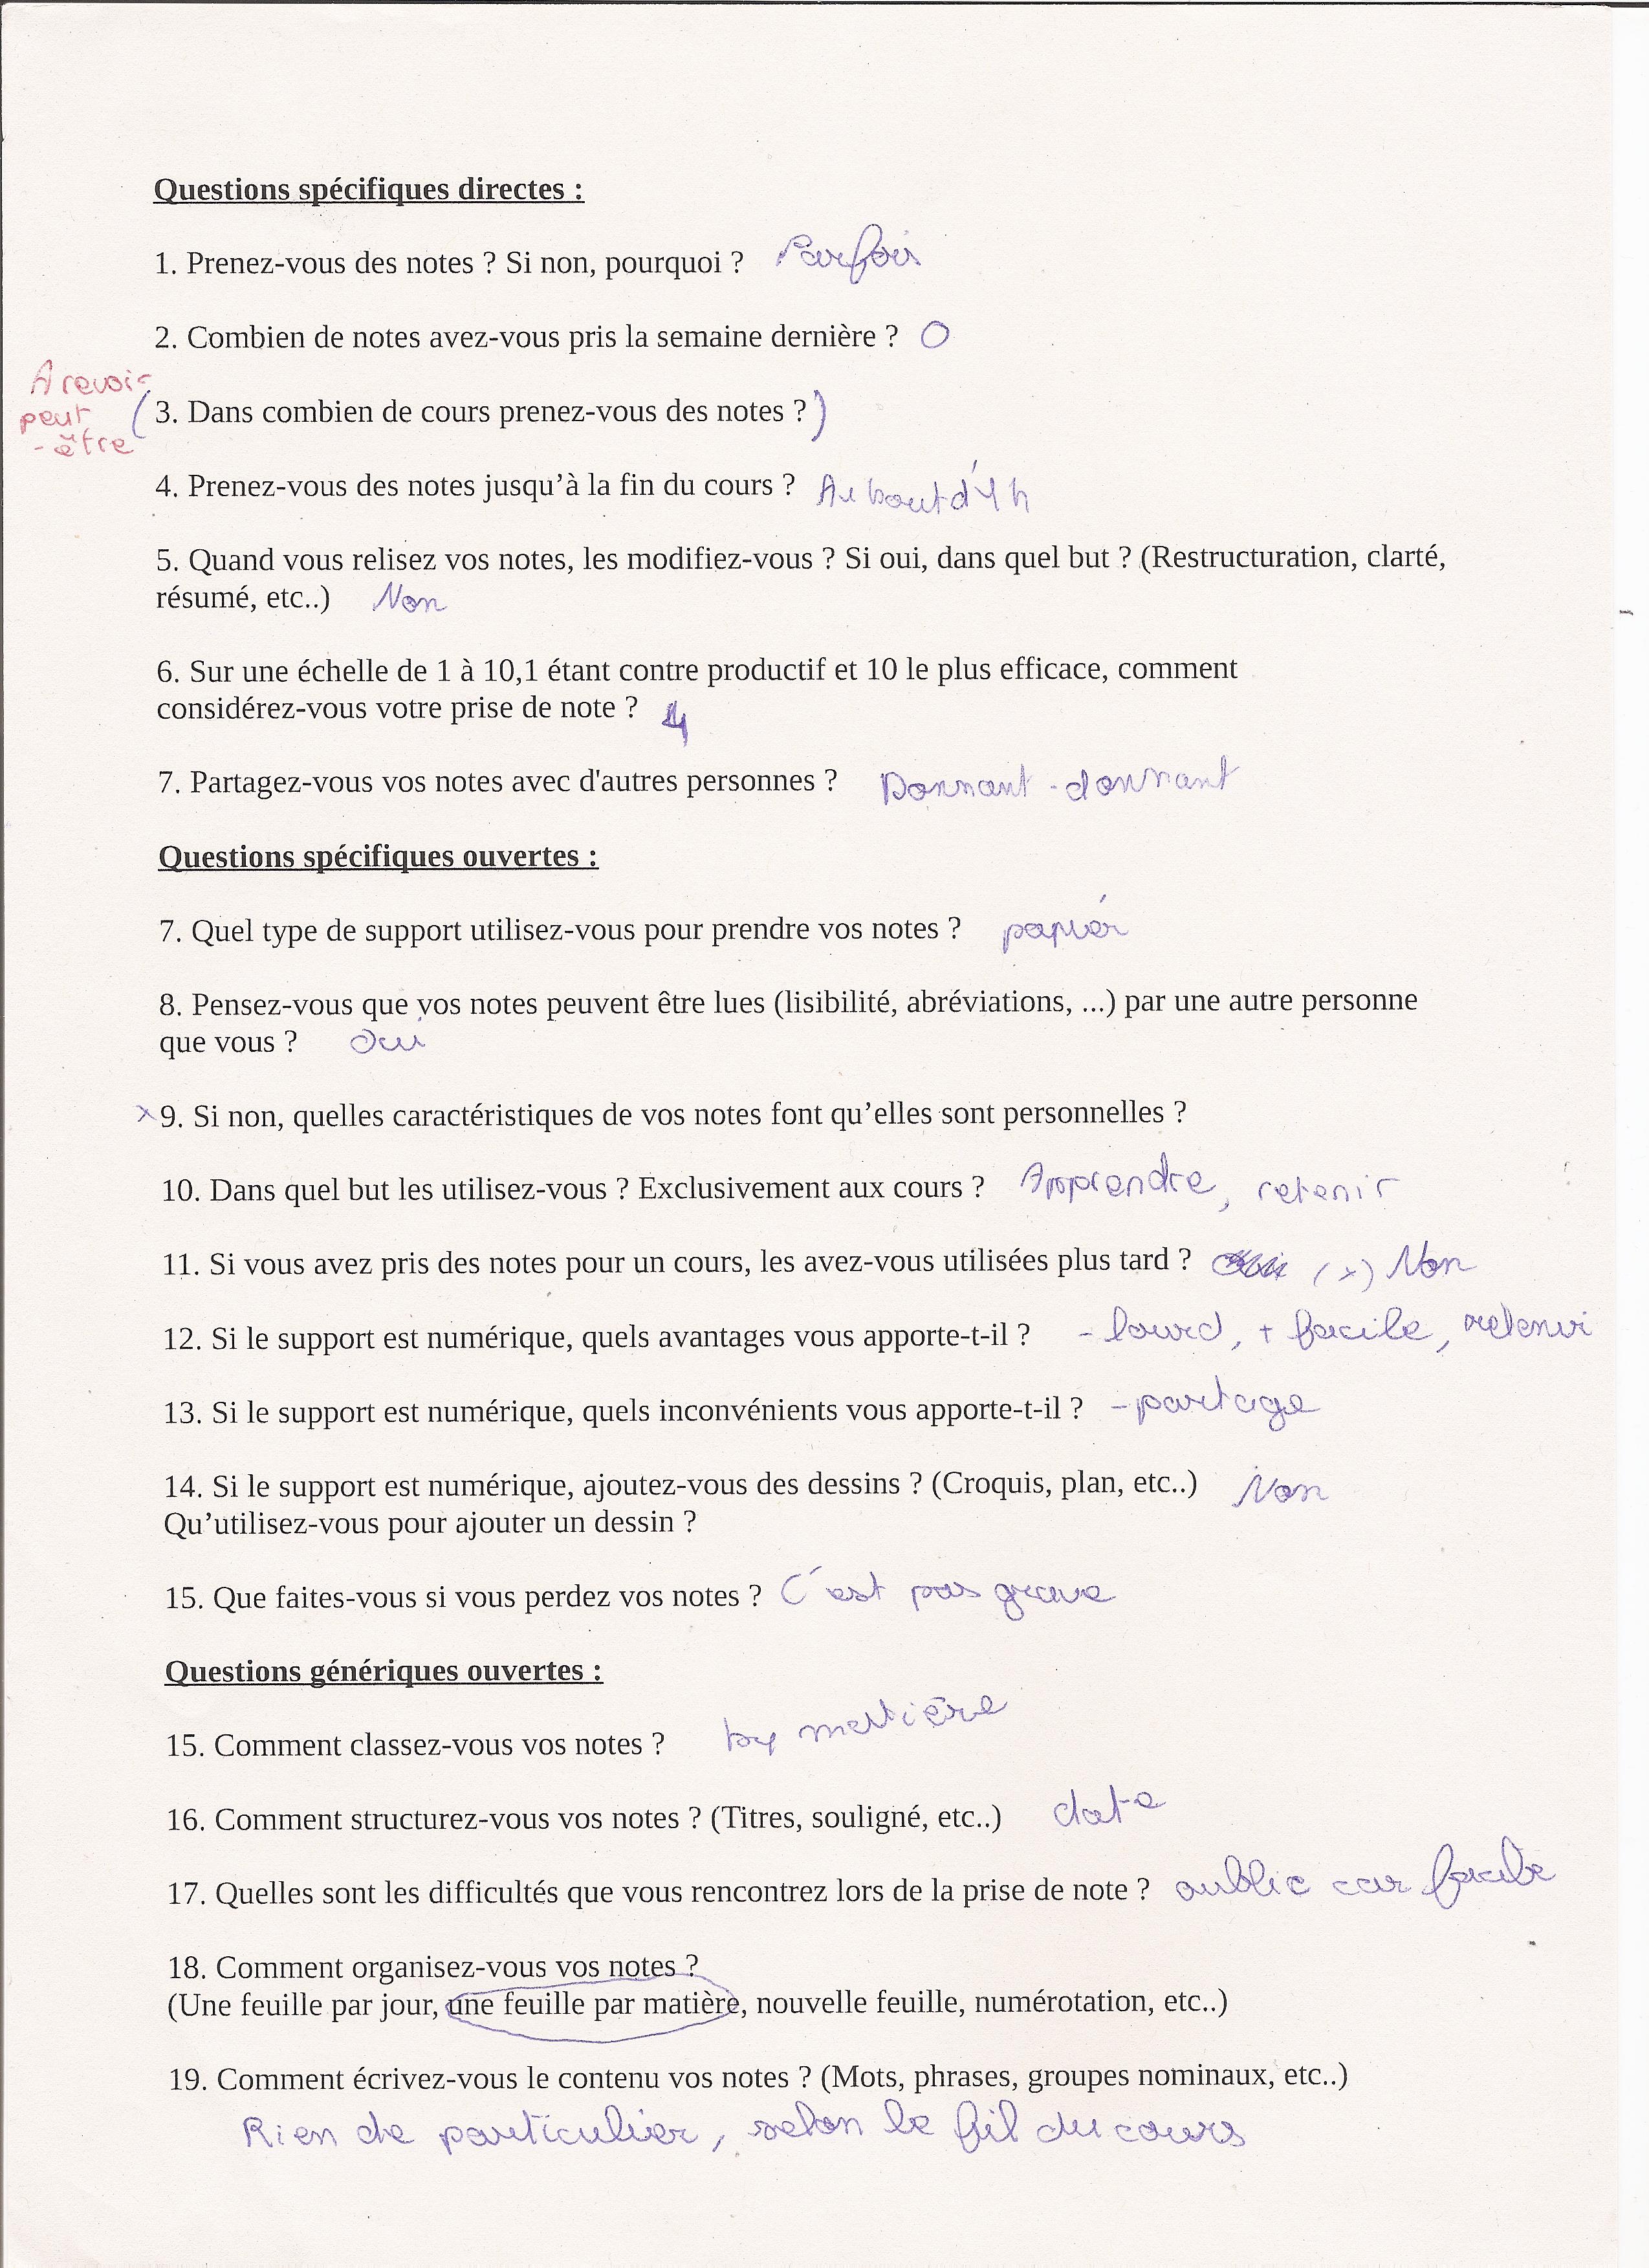 Questions spécifiques directes :
1. Prenez-vous des notes ? Si non, pourquoi ? Parfois
2. Combien de notes avez-vous pris la semaine dernière ? 0
A revoir
peut
-être
(3. Dans combien de cours prenez-vous des notes ?)
4. Prenez-vous des notes jusqu’à la fin du cours ? Au bout d'1h
5. Quand vous relisez vos notes, les modifiez-vous ? Si oui, dans quel but ? (Restructuration, clarté,
résumé, etc..) Non
6. Sur une échelle de 1 à 10,1 étant contre productif et 10 le plus efficace, comment
considérez-vous votre prise de note ? 4
7. Partagez-vous vos notes avec d'autres personnes ? Donnant-donnant
Questions spécifiques ouvertes :
7. Quel type de support utilisez-vous pour prendre vos notes ? papier
8. Pensez-vous que vos notes peuvent être lues (lisibilité, abréviations, ...) par une autre personne
que vous ? Oui
x 9. Si non, quelles caractéristiques de vos notes font qu’elles sont personnelles ?
10. Dans quel but les utilisez-vous ? Exclusivement aux cours ? Apprendre, retenir
11. Si vous avez pris des notes pour un cours, les avez-vous utilisées plus tard ? (x) Non
12. Si le support est numérique, quels avantages vous apporte-t-il ? - lourd, + facile, retenir
13. Si le support est numérique, quels inconvénients vous apporte-t-il ? - partage
14. Si le support est numérique, ajoutez-vous des dessins ? (Croquis, plan, etc..) Non
Qu’utilisez-vous pour ajouter un dessin ?
15. Que faites-vous si vous perdez vos notes ? C'est pas grave
Questions génériques ouvertes :
15. Comment classez-vous vos notes ? by matière
16. Comment structurez-vous vos notes ? (Titres, souligné, etc..) date
17. Quelles sont les difficultés que vous rencontrez lors de la prise de note ? oublie car facile
18. Comment organisez-vous vos notes ?
(Une feuille par jour, une feuille par matière, nouvelle feuille, numérotation, etc..)
19. Comment écrivez-vous le contenu vos notes ? (Mots, phrases, groupes nominaux, etc..)
Rien de particulier, selon le fil du cours